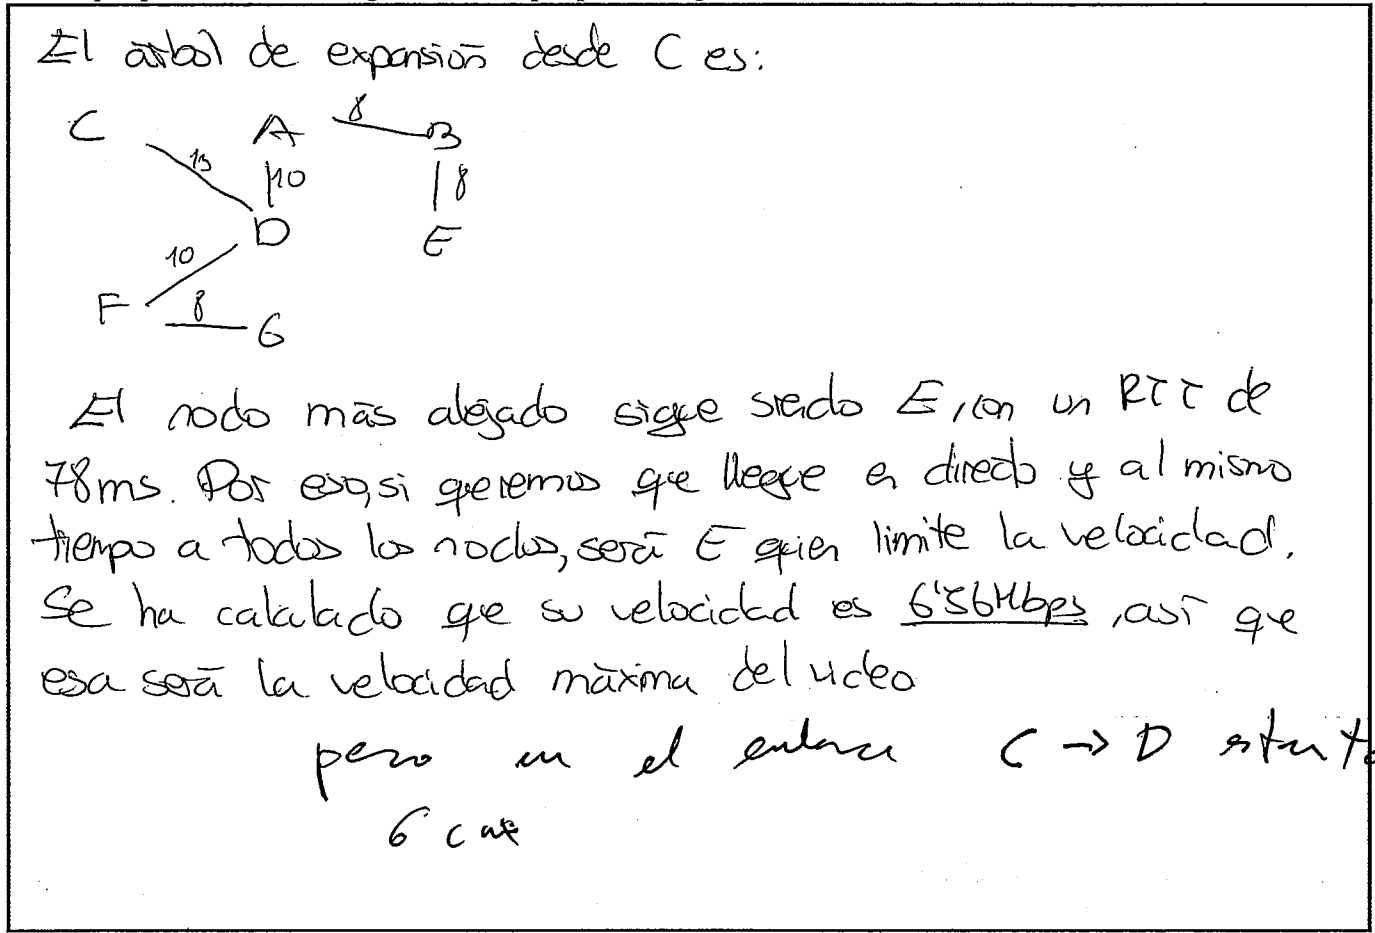 El árbol de expansión desde C es:
C A 8 B
13 10 8
D E
10
F 8 G
El nodo más alejado sigue siendo E, con un RTT de
78ms. Por eso, si queremos que llegue en directo y al mismo
tiempo a todos los nodos, será E quien limite la velocidad.
Se ha calculado que su velocidad es 6'56Mbps, así que
esa será la velocidad máxima del video
pero en el enlace C → D
6